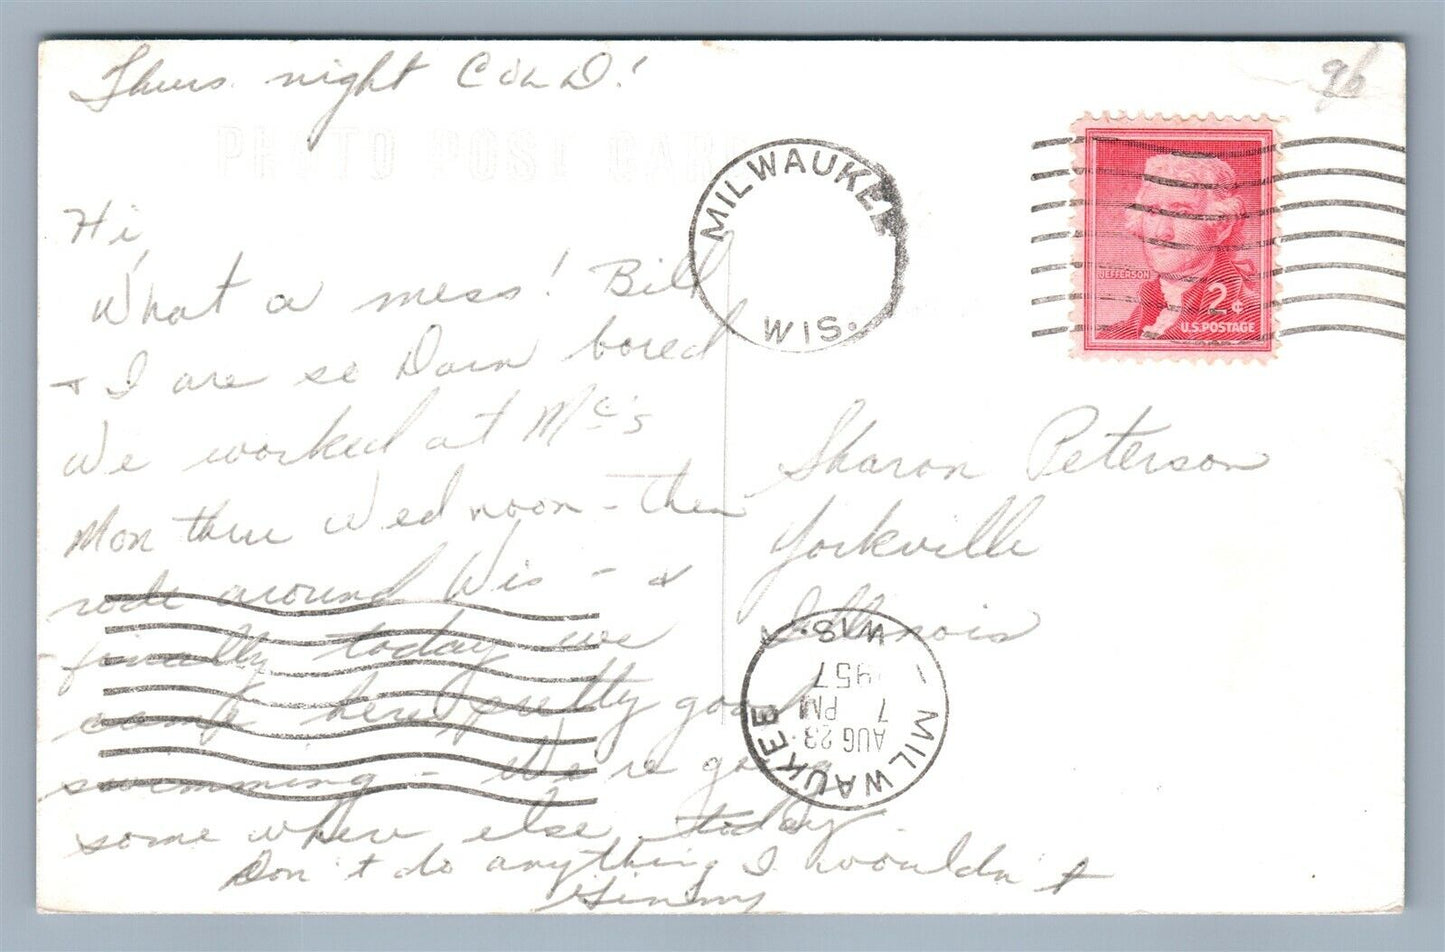 Thurs. night COLD!
96
PHOTO POST CARD
MILWAUKEE
WIS.
JEFFERSON
2¢
U.S. POSTAGE
Hi,
What a mess! Bill
+ I are so Darn bored
We worked at Mc's
Mon thru Wed noon - then
rode around Wis - &
finally today we
came here, pretty good
swimming - We're going
some where else today
Don't do anything I wouldn't
Sharon Peterson
Yorkville
Illinois
MILWAUKEE WIS.
AUG 23
7 PM
1957